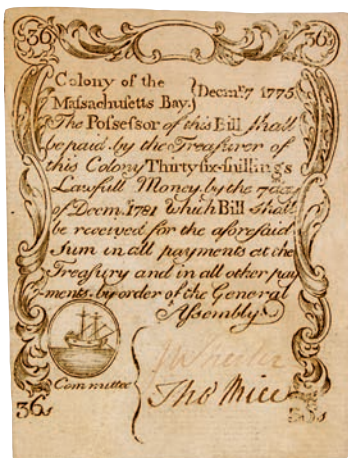 36 36
Colony of the
Massachusetts Bay. } Decmr. 7 1775.
The Possessor of this Bill shall
be paid by the Treasurer of
this Colony Thirty six-shillings
Lawfull Money, by the 7 day
of Decm. 1781 Which Bill Shall
be received for the aforesaid
Sum in all payments at the
Treasury and in all other pay
-ments by order of the General
Assembly
Committee
Tho
36s